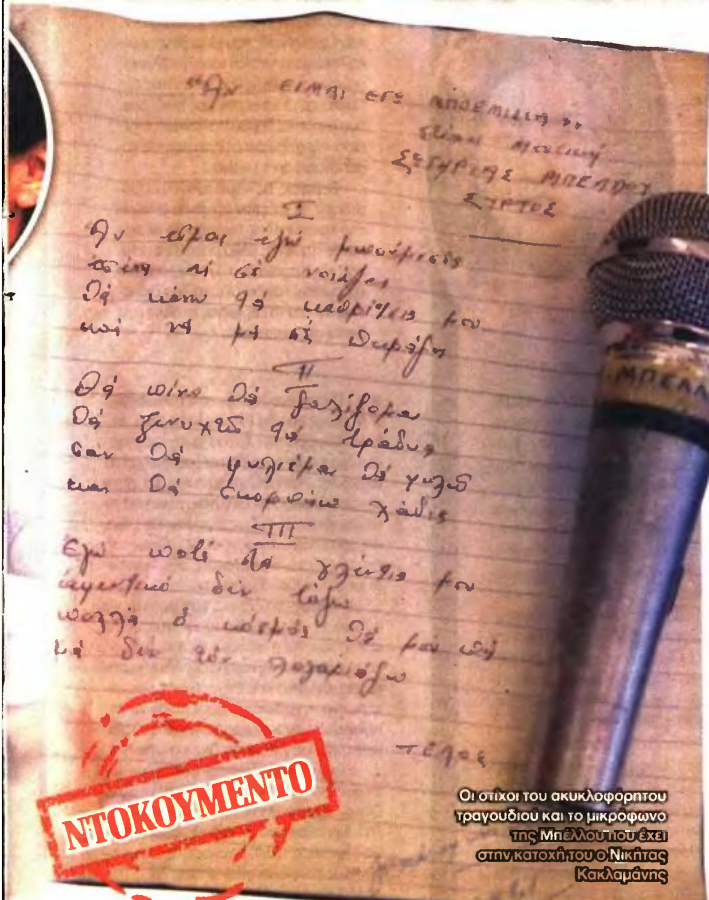 "Αν ΕΙΜΑΙ ΕΓΩ ΜΠΟΕΜΙΣΣΑ"
ΣΩΤΗΡΙΑΣ ΜΠΕΛΛΟΥ
ΣΥΡΤΟΣ
I
Αν είμαι εγώ μποέμισσα
εσένα τί σέ νοιάζει
Θά κάνω τά
καί νά μή σέ πειράζη
II
Θά πίνω θά ζαλίζομαι
Θά ξενυχτῶ τά βράδυα
σάν θά φιλιέμαι θά φιλῶ
και Θά σκορπάω χάδια
III
Εγώ ποτέ στα γλέντια μου
αφεντικό δέν βάζω
πολλά ὁ κόσμος Θά μου πῆ
μά δέν τόν λογαριάζω
ΤΕΛΟΣ
ΜΠΕΛΛ
ΝΤΟΚΟΥΜΕΝΤΟ
Οι στίχοι του ακυκλοφόρητου
τραγουδιού και το μικρόφωνο
της Μπέλλου που έχει
στην κατοχή του ο Νικήτας
Κακλαμάνης